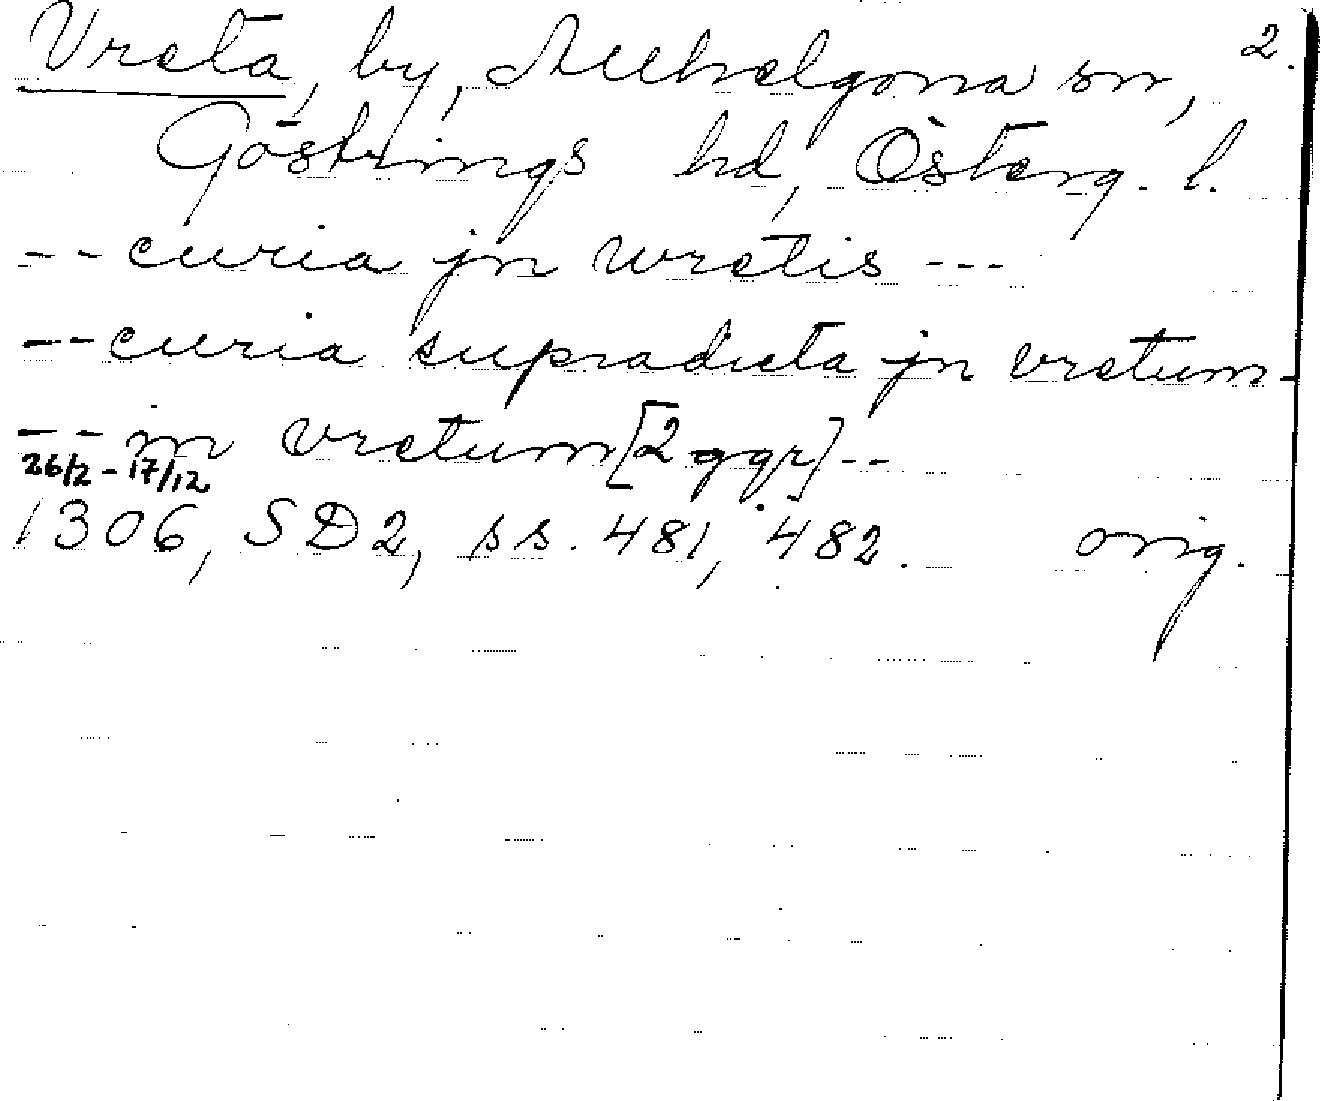 Vreta, by, Allhelgona sn, 2.
Göstrings hd, Österg. l.
-- curia jn wretis ---
-- curia supradicta jn vretum -
-- in vretum [2 ggr] --
26/2 - 17/12
1306, SD2, ss. 481, 482. orig.